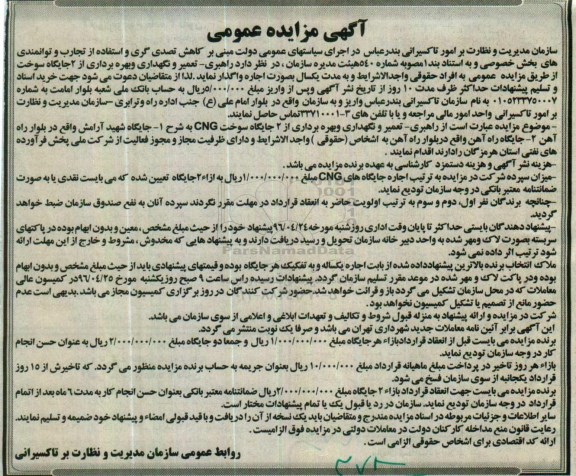 آگهی مزایده عمومی
سازمان مدیریت و نظارت بر امور تاکسیرانی بندرعباس در اجرای سیاستهای عمومی دولت مبنی بر کاهش تصدی گری و استفاده از تجارب و توانمندی
های بخش خصوصی و به استناد بند۱مصوبه شماره ۴۰هیئت مدیره سازمان ، در نظر دارد راهبری- تعمیر و نگهداری وبهره برداری از ۲جایگاه سوخت
از طریق مزایده عمومی به افراد حقوقی واجدالشرایط و به مدت یکسال بصورت اجاره واگذار نماید .لذا از متقاضیان دعوت می شود جهت خرید اسناد
و تسلیم پیشنهادات حداکثر ظرف مدت ۱۰ روز از تاریخ نشر آگهی وپس از واریز مبلغ ۵۰۰/۰۰۰ریال به حساب بانک ملی شعبه بلوار امامت به شماره
۰۱۰۵۲۳۳۷۵۰۰۰۷ به نام سازمان تاکسیرانی بندرعباس واریز و به سازمان واقع در بلوار امام علی (ع) جنب اداره راه وترابری -سازمان مدیریت و نظارت
بر امور تاکسیرانی واحد امور مالی مراجعه و یا با تلفن های ۳-۳۳۷۱۰۰۰۱تماس حاصل نمایند.
- موضوع مزایده عبارت است از راهبری- تعمیر و نگهداری وبهره برداری از ۲ جایگاه سوخت CNG به شرح ۱- جایگاه شهید آرامش واقع در بلوار راه
آهن ۲- جایگاه راه آهن واقع دربلوار راه آهن به اشخاص (حقوقی ) واجد الشرایط و دارای ظرفیت مجاز و مجوز فعالیت از شرکت ملی پخش فرآورده
های نفتی استان هرمزگان رادارند اقدام نمایند .
-هزینه نشر آگهی و هزینه دستمزد کارشناسی به عهده برنده مزایده می باشد.
-میزان سپرده شرکت در مزایده به ترتیب اجاره جایگاه های CNG مبلغ ۱/۰۰۰/۰۰۰/۰۰۰ریال به ازاء۲جایگاه تعیین شده که می بایست نقدی یا به صورت
ضمانتنامه معتبر بانکی در وجه سازمان تودیع نماید.
-چنانچه برندگان نفر اول، دوم و سوم به ترتیب اولویت حاضر به انعقاد قرارداد در مهلت مقرر نگردند سپرده آنان به نفع صندوق سازمان ضبط خواهد
گردید.
-پیشنهاددهندگان بایستی حداکثر تا پایان وقت اداری روز شنبه مورخه ۹۶/۰۴/۲۴ پیشنهاد خودرا از حیث مبلغ مشخص ، معین و بدون ابهام بوده در پاکتهای
سربسته بصورت لاک ومهر شده به واحد دبیر خانه سازمان تحویل و رسید دریافت دارند و به پیشنهاد هایی که مخدوش ، مشروط و خارج از این مهلت ارائه
شود ترتیب اثر داده نمی شود.
ملاک انتخاب برنده بالاترین پیشنهادداده شده از بابت اجاره یکساله و به تفکیک هر جایگاه بوده و قیمتهای پیشنهادی باید از حیث مبلغ مشخص و بدون ابهام
بوده ودر پاکت لاک و مهر شده در موعد مقرر تسلیم سازمان گردد. پیشنهادات رسیده راس ساعت ۹ صبح روزیکشنبه مورخ ۹۶/۰۴/۲۵در کمیسیون عالی
معاملات که در محل سازمان تشکیل می گردد باز و قرائت خواهد شد.حضور شرکت کنندگان در روز برگزاری کمیسیون مجاز می باشد .بدیهی است عدم
حضور مانع از تصمیم یا تشکیل کمیسیون نخواهد بود.
شرکت در مزایده و ارائه پیشنهاد به منزله قبول شروط و تکالیف و تعهدات ابلاغی و اعلامی از سوی سازمان می باشد.
این آگهی برابر آئین نامه معاملات جدید شهرداری تهران می باشد و صرفا یک نوبت منتشر می گردد.
برنده مزایده می بایست قبل از انعقاد قراردادبازاء هرجایگاه مبلغ ۱/۰۰۰/۰۰۰/۰۰۰ ریال و جمعا دو جایگاه مبلغ ۲/۰۰۰/۰۰۰/۰۰۰ ریال به عنوان حسن انجام
کار در وجه سازمان تودیع نماید.
بازاء هر روز تاخیر در پرداخت مبلغ ماهیانه قرارداد مبلغ ۱۰/۰۰۰/۰۰۰ ریال بعنوان جریمه به حساب برنده مزایده منظور می گردد، که تاخیرش از ۱۵ روز
قرارداد یکجانبه از سوی سازمان فسخ می شود.
برنده مزایده می بایست جهت انعقاد قرارداد بازاء ۲ جایگاه مبلغ ۲/۰۰۰/۰۰۰/۰۰۰ریال ضمانتنامه معتبر بانکی بعنوان حسن انجام کار به مدت ۶ ماه بعد از اتمام
قرارداد در وجه سازمان تودیع نماید.سازمان در رد یا قبول یک یا تمام پیشنهادات مختار است.
سایر اطلاعات و جزئیات مربوطه در اسناد مزایده مندرج و متقاضیان باید یک نسخه از آن را دریافت و با قید قبولی امضاء و پیشنهاد خود ضمیمه و تسلیم نمایند.
رعایت قانون منع مداخله کارکنان دولت در معاملات دولتی در مزایده فوق الزامیست .
ارائه کد اقتصادی برای اشخاص حقوقی الزامی است .
روابط عمومی سازمان مدیریت و نظارت بر تاکسیرانی